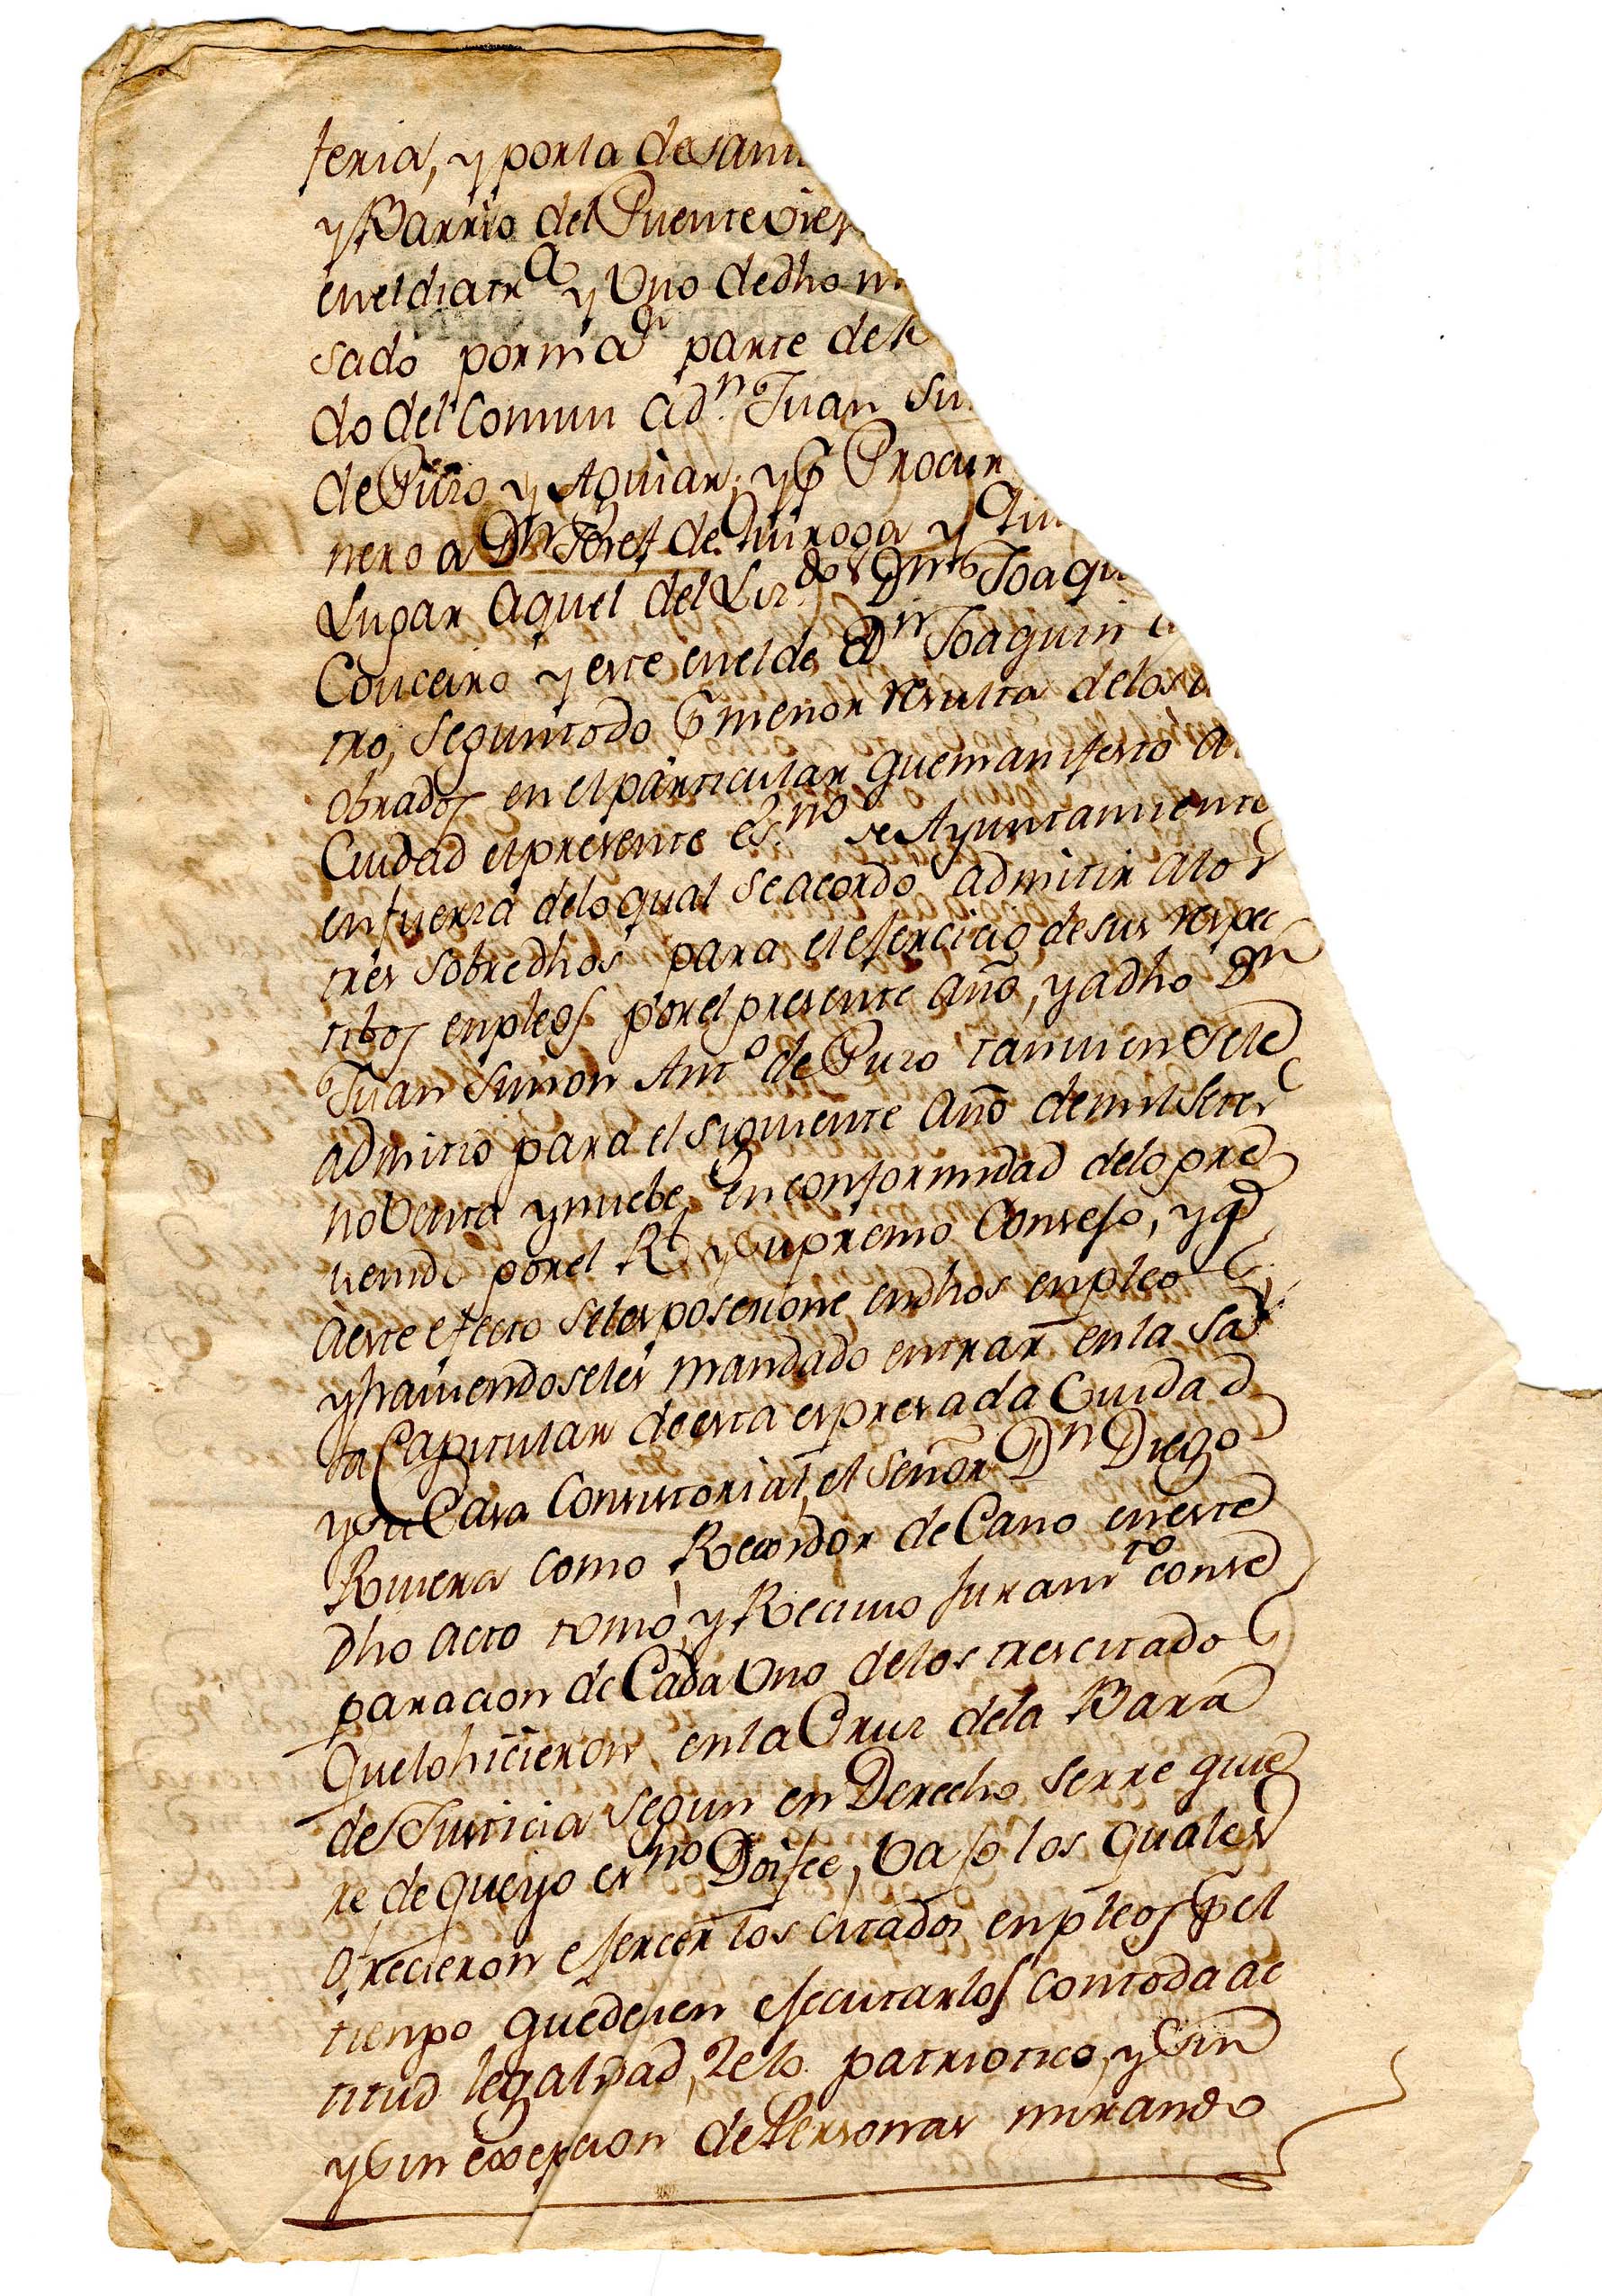 feria, y por la de sann
y Barrio del Puente Viej
en el dia trª y Uno de dho m
sado por maor parte de
do del Comun a dn. Juan Si
de Puzo y Aguiar, y pr Procur
nero a Dn Josef de Quiroga y
Lugar aquel del Lizdo Dn Joaqu
Conceiro y este en el de Dn Joaquin
tro, segun todo pr menor resulta de los
obrados en el particular que manifesto a
Ciudad el presente esno. de Ayuntamiento
en fuerza delo qual se acordo admitir a los
tres sobredhos para el efercicio de sus respec
tibos enpleos por el presente año, y a dho Dn
Juan Simon Anto de Puzo tamuien se le
admitio para el siguiente año de mil seter
noventa y nuebe en conformidad delo pre
uenido por el Rl y Supremo Consejo, y qe
a este efecto seles posesione en dhos enpleo
y hauiendoseles mandado entrar en la Sa
la Capitular de esta espresada Ciudad
y su Casa Consistorial, el Señor Dn Diego
Riuera como Rexidor de Cano en este
dho acto tomo, y Reciuio Juramto con se
paracion de Cada Uno de los tres citado
que lo hicieron en la Cruz dela Bara
de Justicia segun en Derecho se rre quie
re, de que yo esno Doi fee, Vajo los quales
Ofrecieron efercer los citados enpleos pr el
tienpo que deuen efecutarlos con toda ac
titud legalidad, Zelo patriotico, y sin
y sin exepcion de Personas mirando